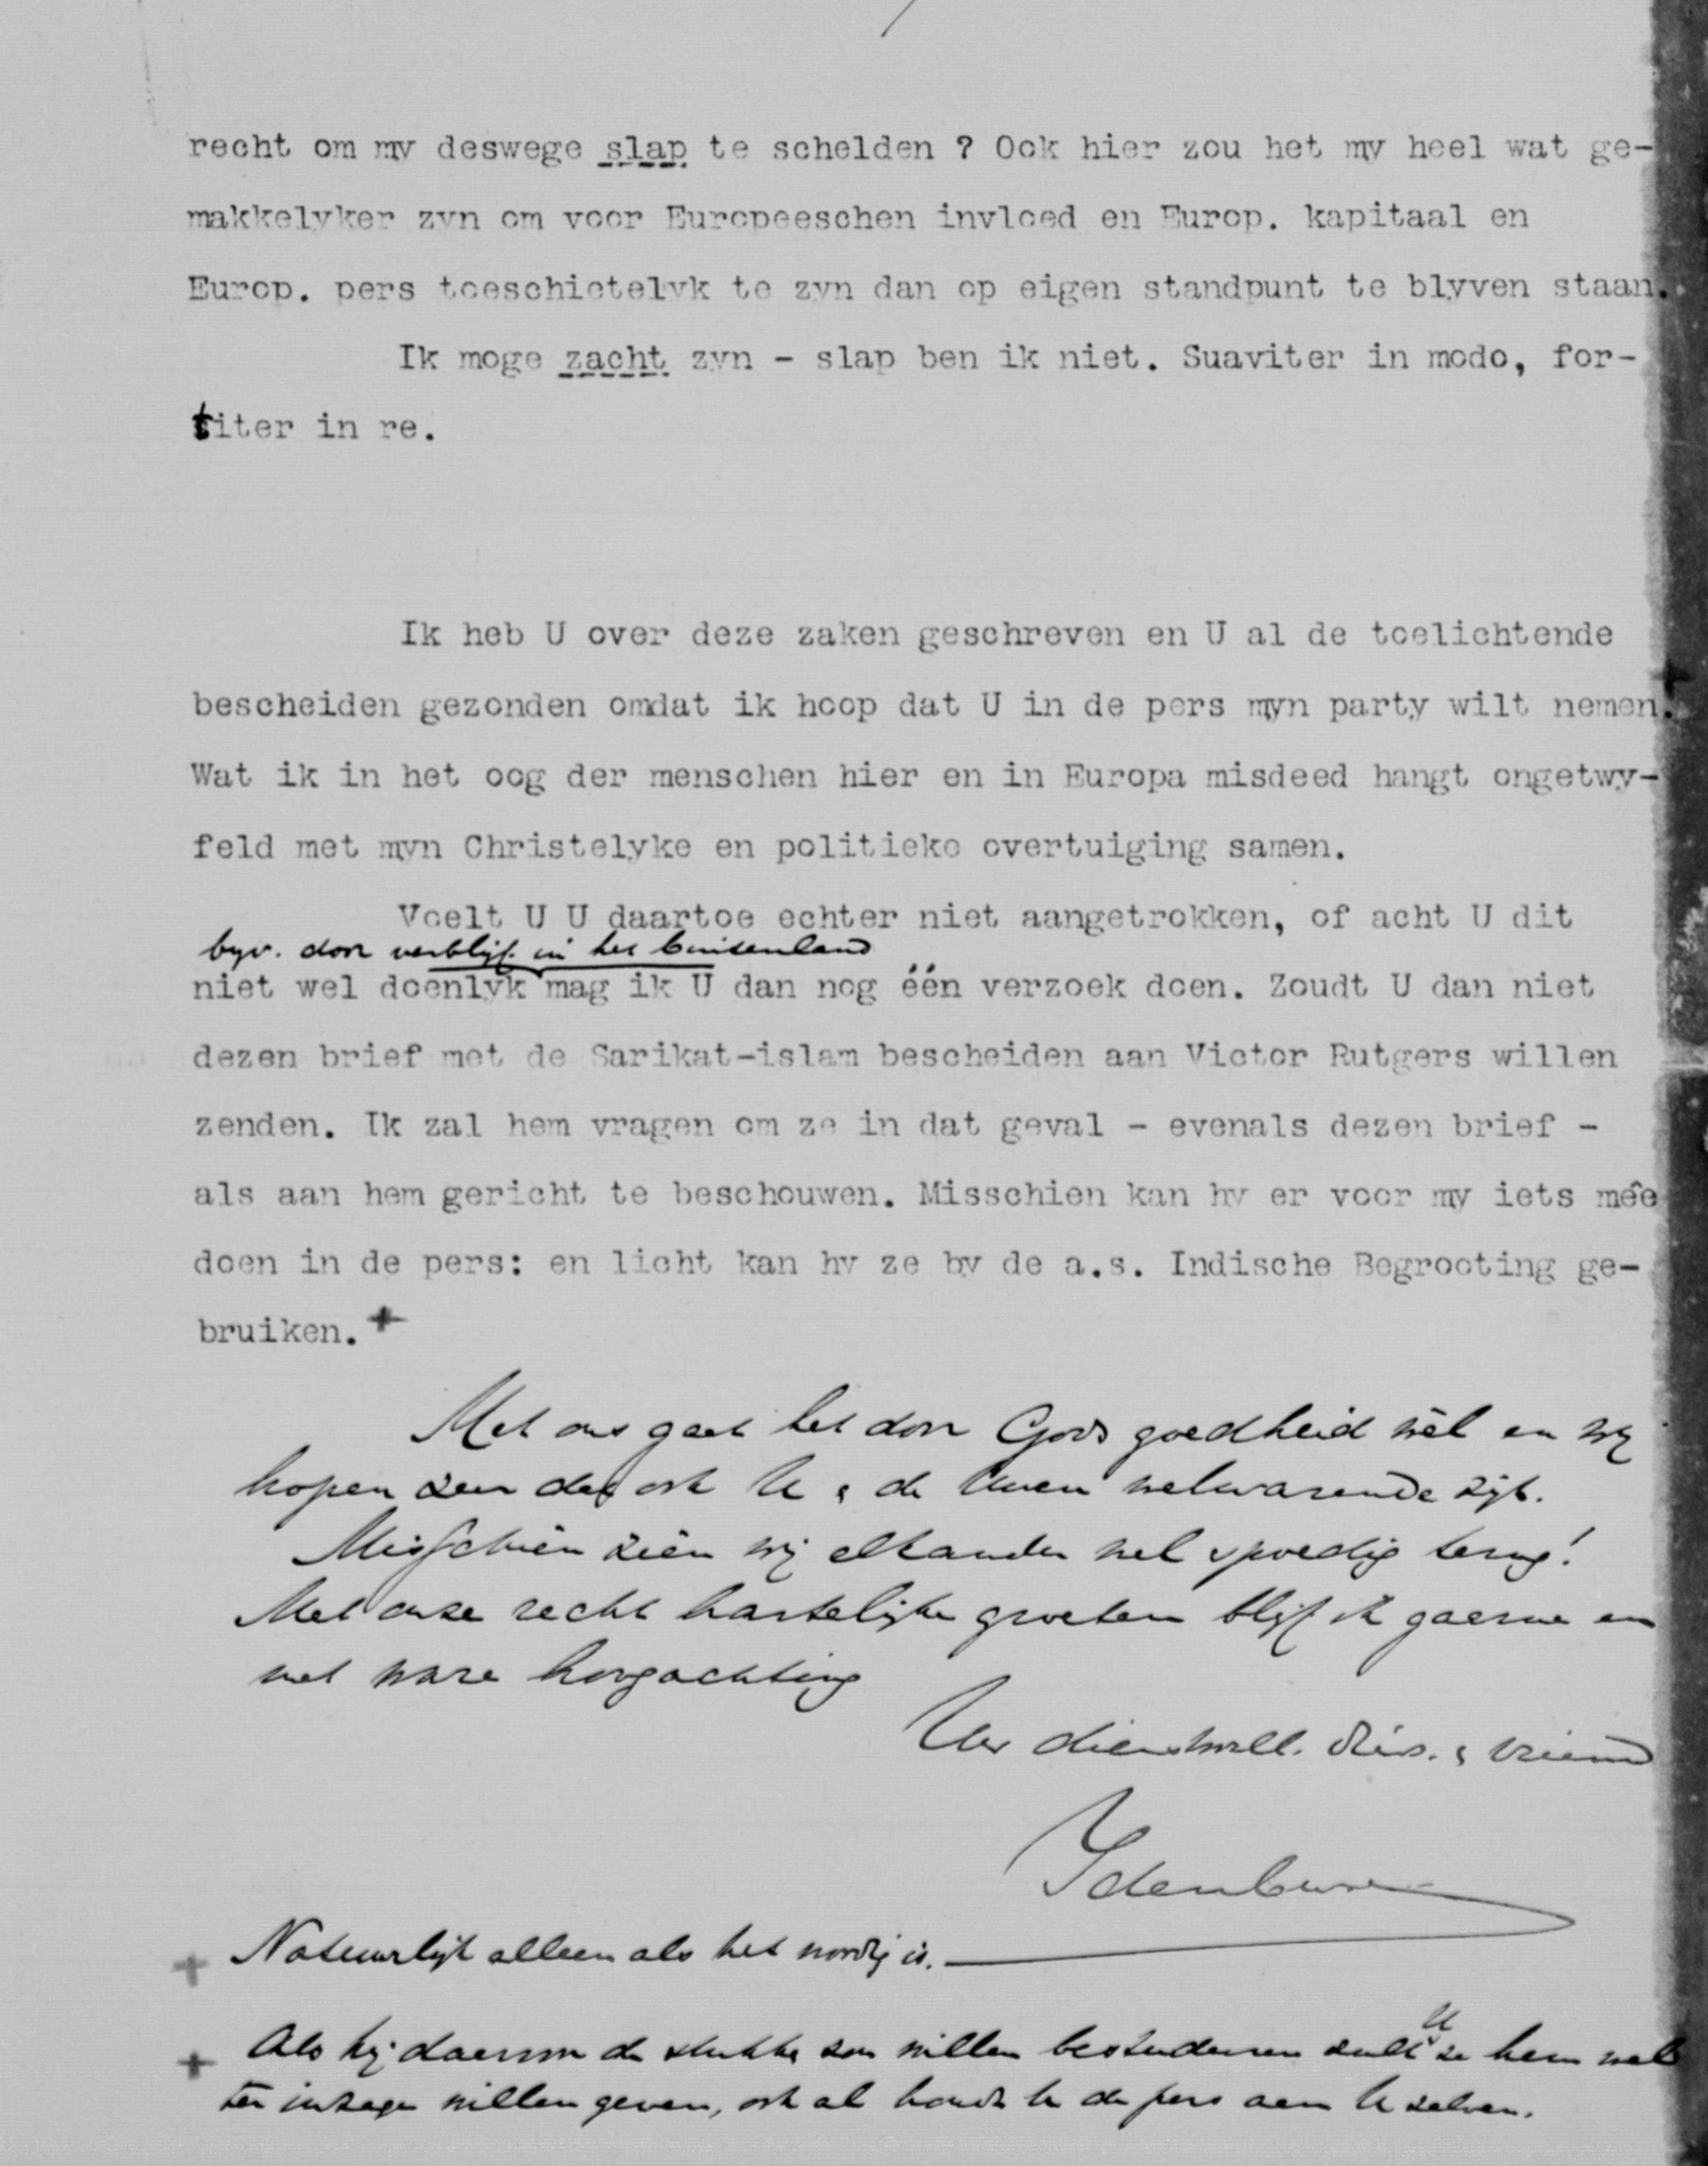 recht om my deswege slap te schelden ? Ook hier zou het my heel wat ge-
makkelyker zyn om voor Europeeschen invloed en Europ. kapitaal en
Europ. pers toeschietelyk te zyn dan op eigen standpunt te blyven staan.
Ik moge zacht zyn - slap ben ik niet. Suaviter in modo, for-
titer in re.
Ik heb U over deze zaken geschreven en U al de toelichtende
bescheiden gezonden omdat ik hoop dat U in de pers myn party wilt nemen.
Wat ik in het oog der menschen hier en in Europa misdeed hangt ongetwy-
feld met myn Christelyke en politieke overtuiging samen.
Voelt U U daartoe echter niet aangetrokken, of acht U dit
byv. door verblijf in het buitenland
niet wel doenlyk mag ik U dan nog één verzoek doen. Zoudt U dan niet
dezen brief met de Sarikat-islam bescheiden aan Victor Rutgers willen
zenden. Ik zal hem vragen om ze in dat geval - evenals dezen brief -
als aan hem gericht te beschouwen. Misschien kan hy er voor my iets mêe
doen in de pers: en licht kan hy ze by de a.s. Indische Begrooting ge-
bruiken. +
Met ons gaat het door Gods goedheid wèl en wij
hopen zeer dat ook U & de Uwen welvarende zijt.
Misschien zien wij elkander wel spoedig terug!
Met onze recht hartelijke groeten blijf ik gaerne en
met ware hoogachting
Uw dienstwill. dien. & vriend
Idenburg
+ Natuurlijk alleen als het noodig is.
+ Als hij daarom de stukken zou willen bestudeeren zult U ze hem wel
ter inzage willen geven, ook al houdt U de pers aan U zelven.